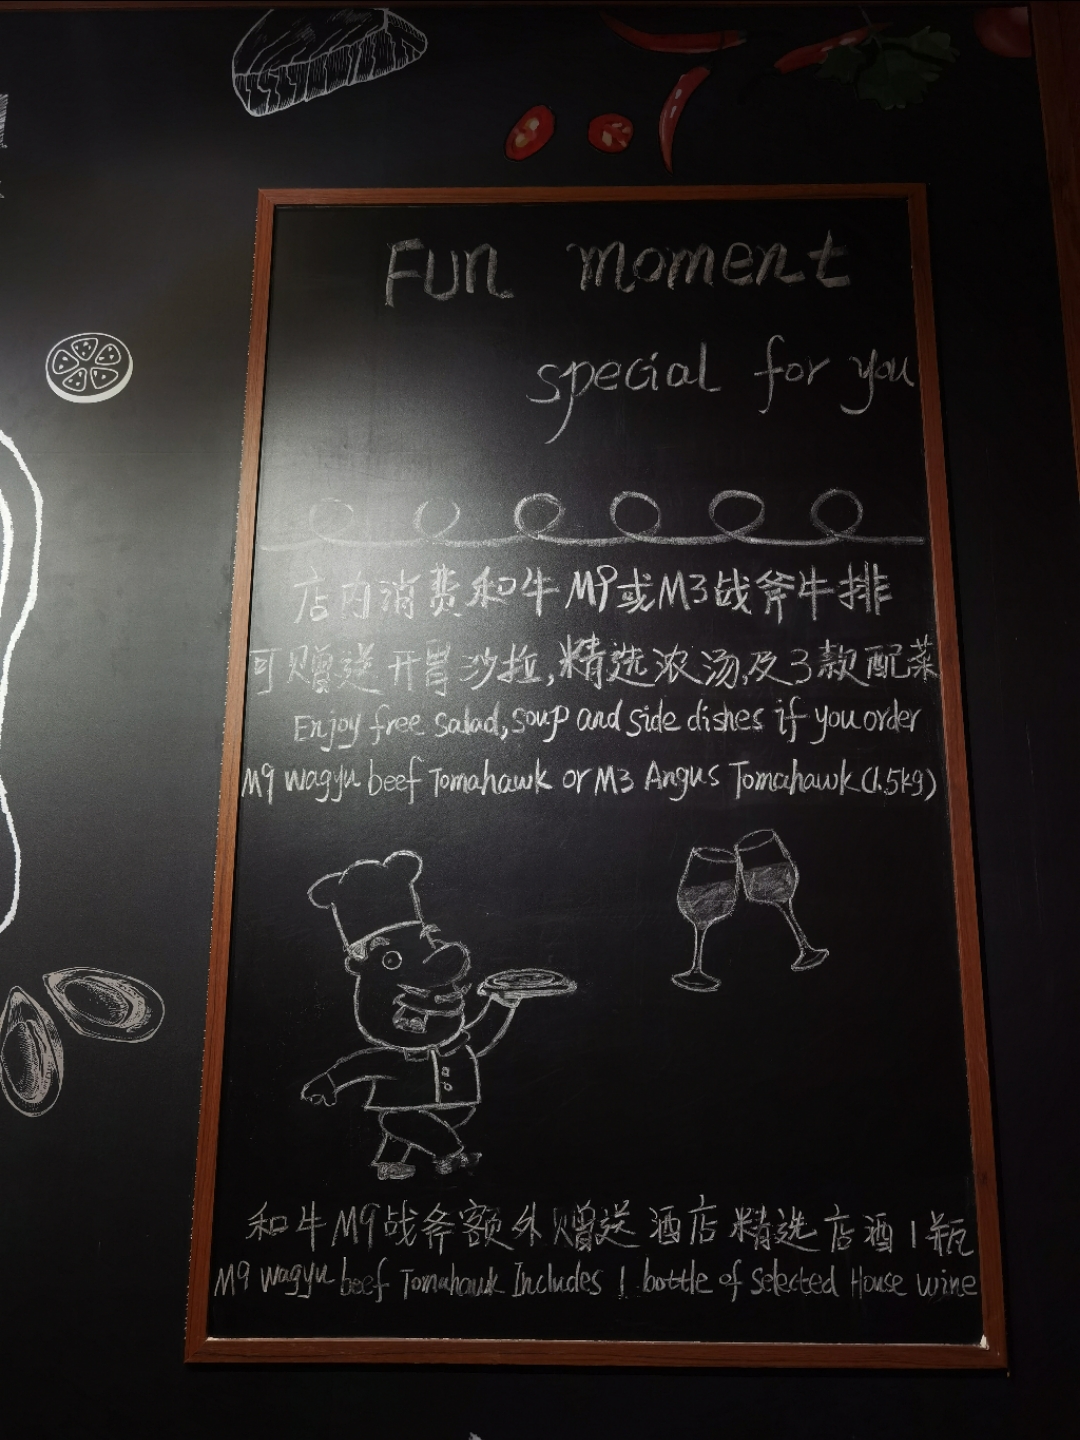 Fun moment
special for you
店内消费和牛M9或M3战斧牛排
可赠送开胃沙拉,精选浓汤,及3款配菜
Enjoy free salad, soup and side dishes if you order
M9 wagyu beef Tomahawk or M3 Angus Tomahawk (1.5kg)
和牛M9战斧额外赠送酒店精选店酒1瓶
M9 wagyu beef Tomahawk Includes 1 bottle of Selected House wine